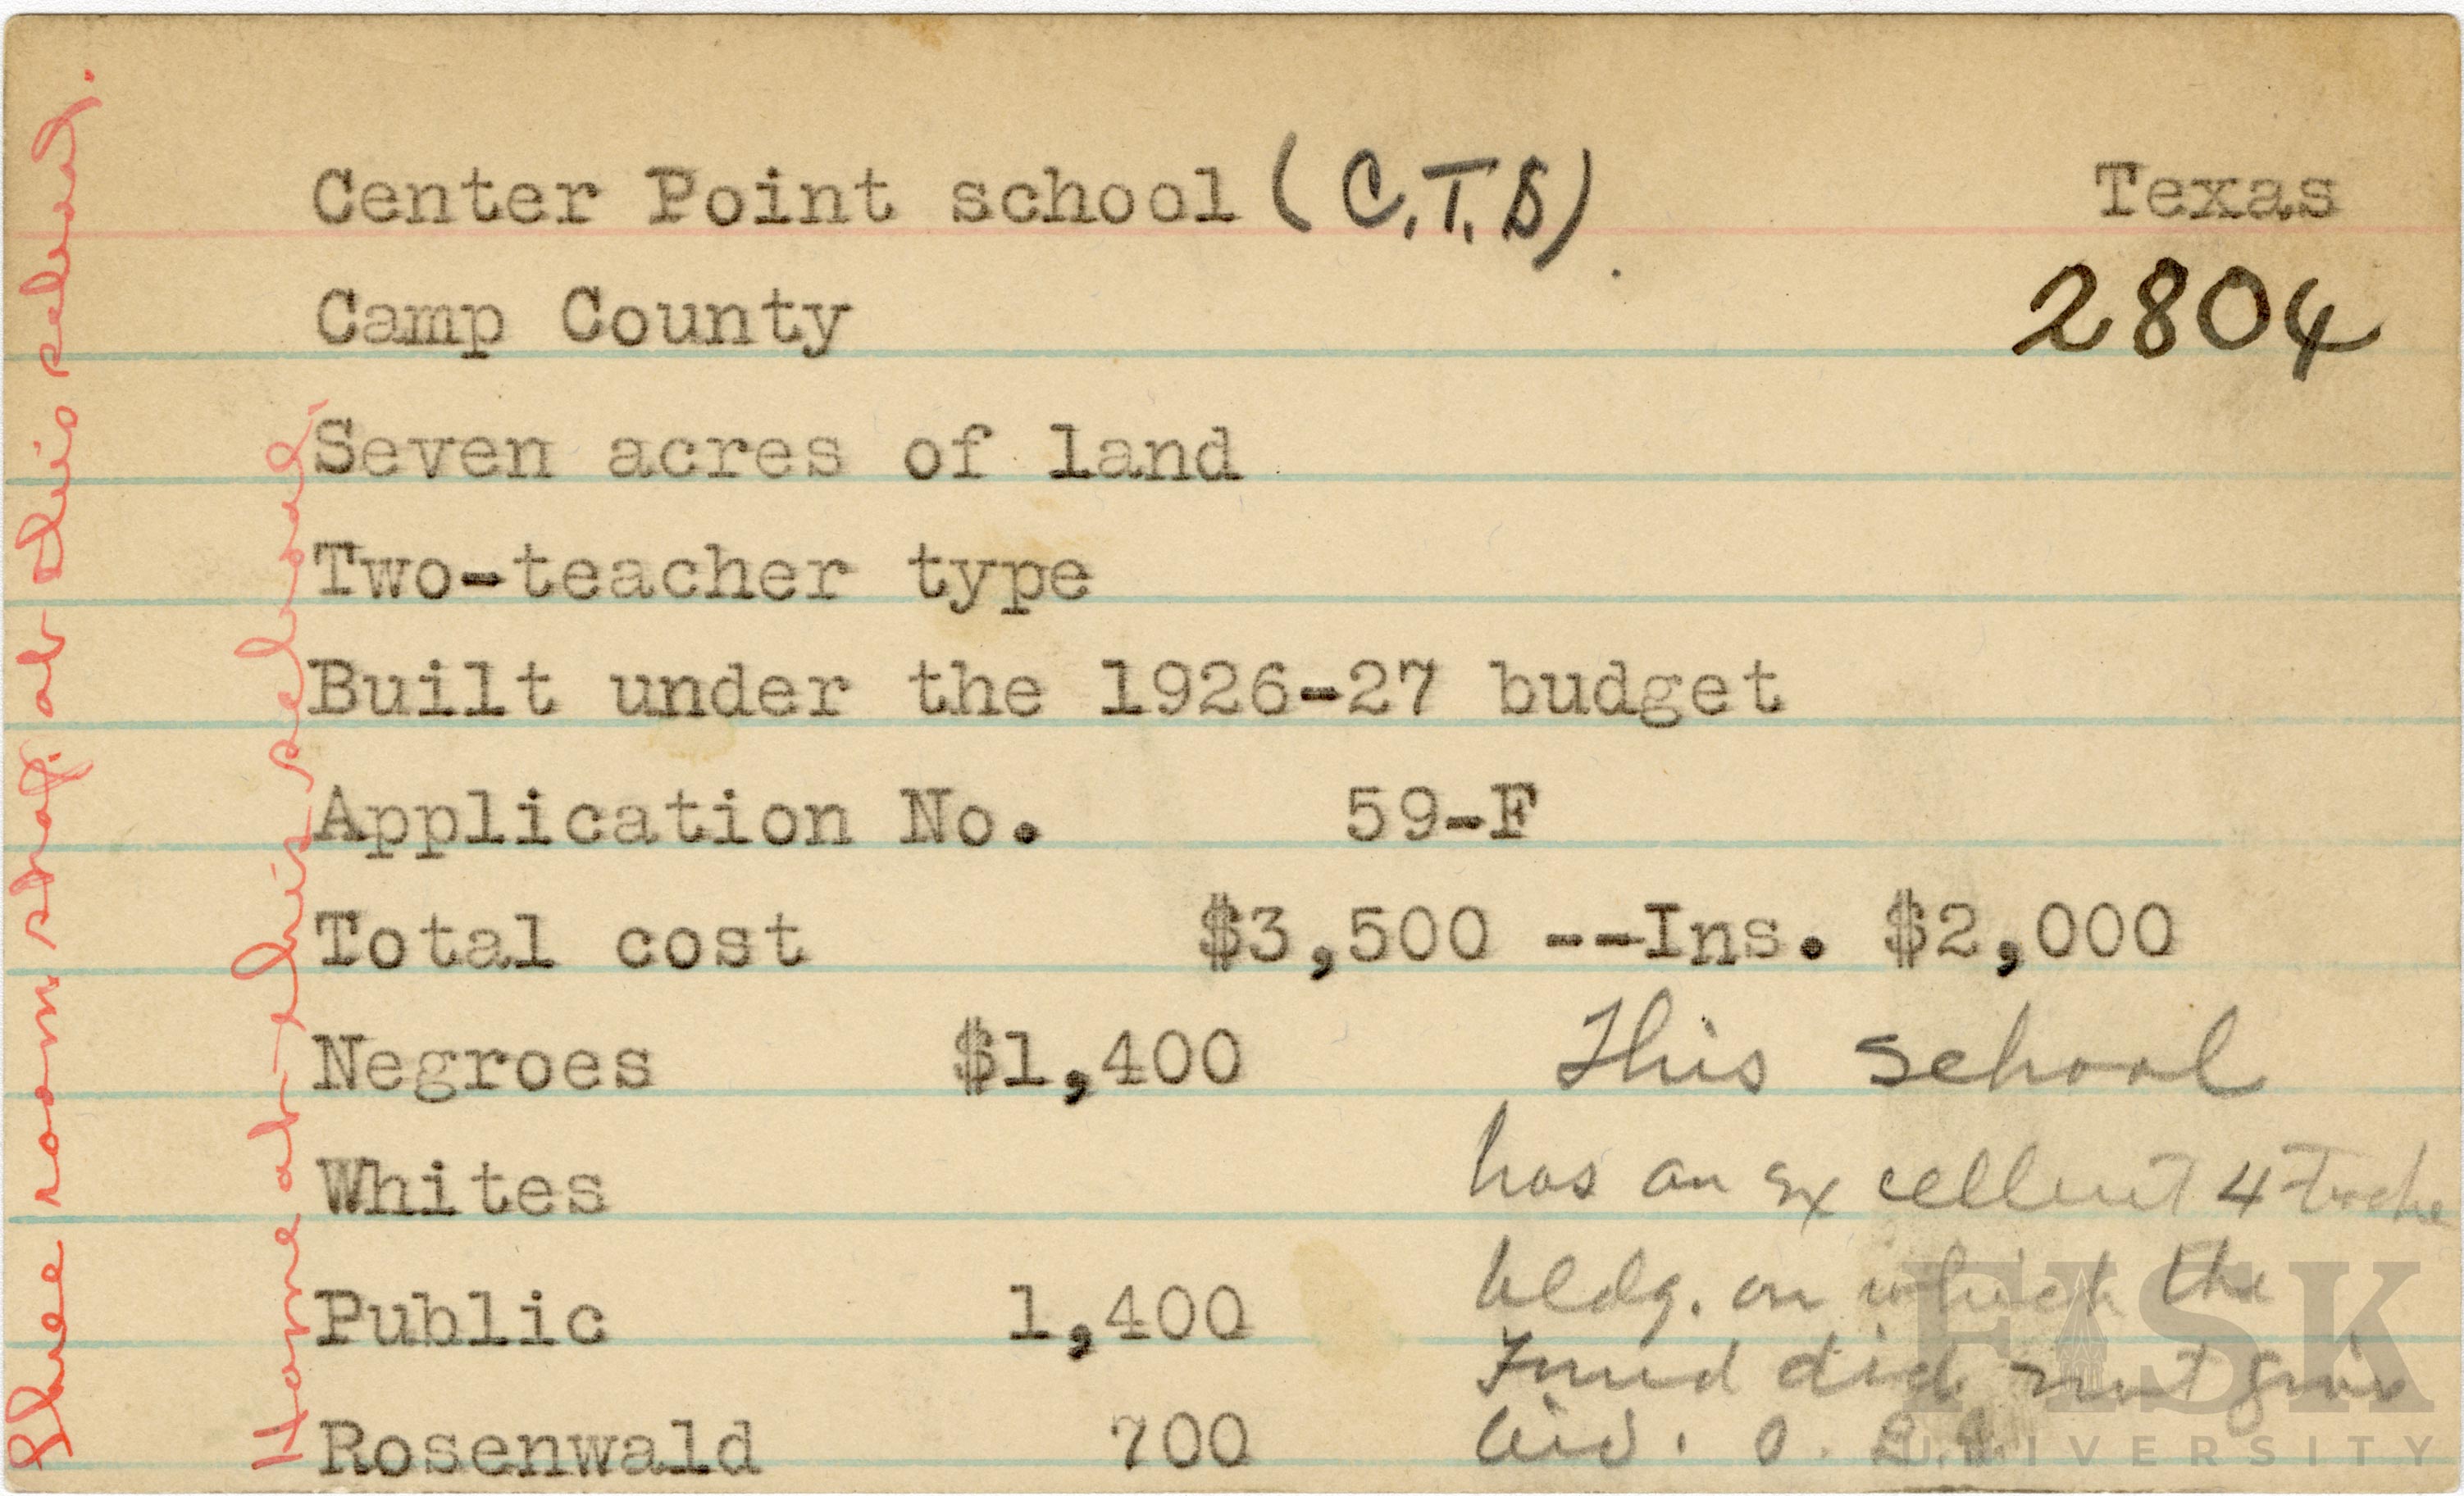 Center Point school (C.T.S) Texas
Camp County 2804
Seven acres of land
Two-teacher type
Built under the 1926-27 budget
Application No. 59-F
Total cost $3,500 --Ins. $2,000
Negroes $1,400
Whites
Public 1,400
Rosenwald 700
This school
has an excellent 4
bldg. on which the
Fund did not give
aid.
Three room shop at this school.
Home at this school.
FISK
UNIVERSITY